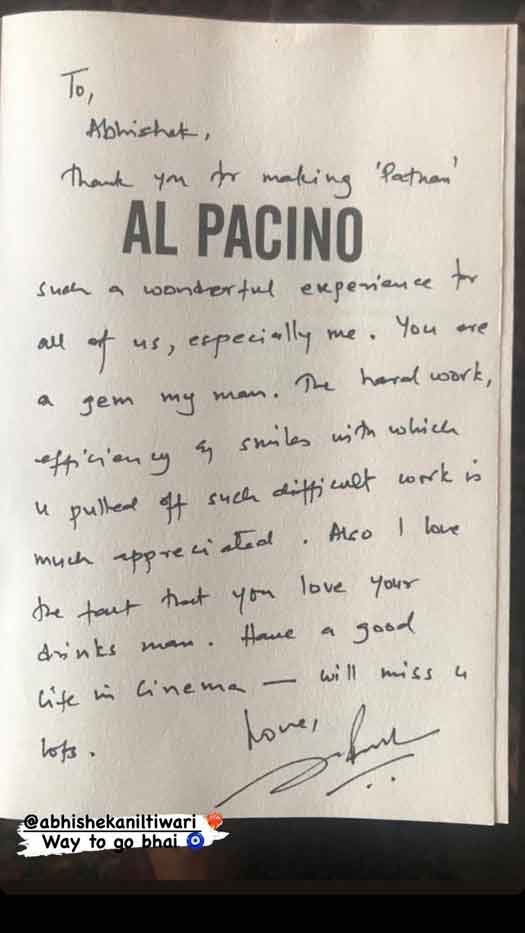 To,
Abhishek,
Thank you for making 'Pathan'
AL PACINO
such a wonderful experience for
all of us, especially me. You are
a gem my man. The hard work,
efficiency & smiles with which
u pulled off such difficult work is
much appreciated. Also I love
the fact that you love your
drinks man. Have a good
life in Cinema — will miss u
lots.
Love,
@abhishekaniltiwari
Way to go bhai